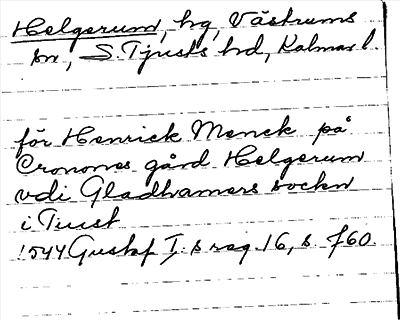 Helgerum, hg, Västrums
sn, S. Tjusts hd, Kalmar l.
för Henrick Menck på
Cronones gård Helgerum
vdi Gladhamers sockn
i Tiust
1544 Gustaf I:s reg. 16, s. 760.